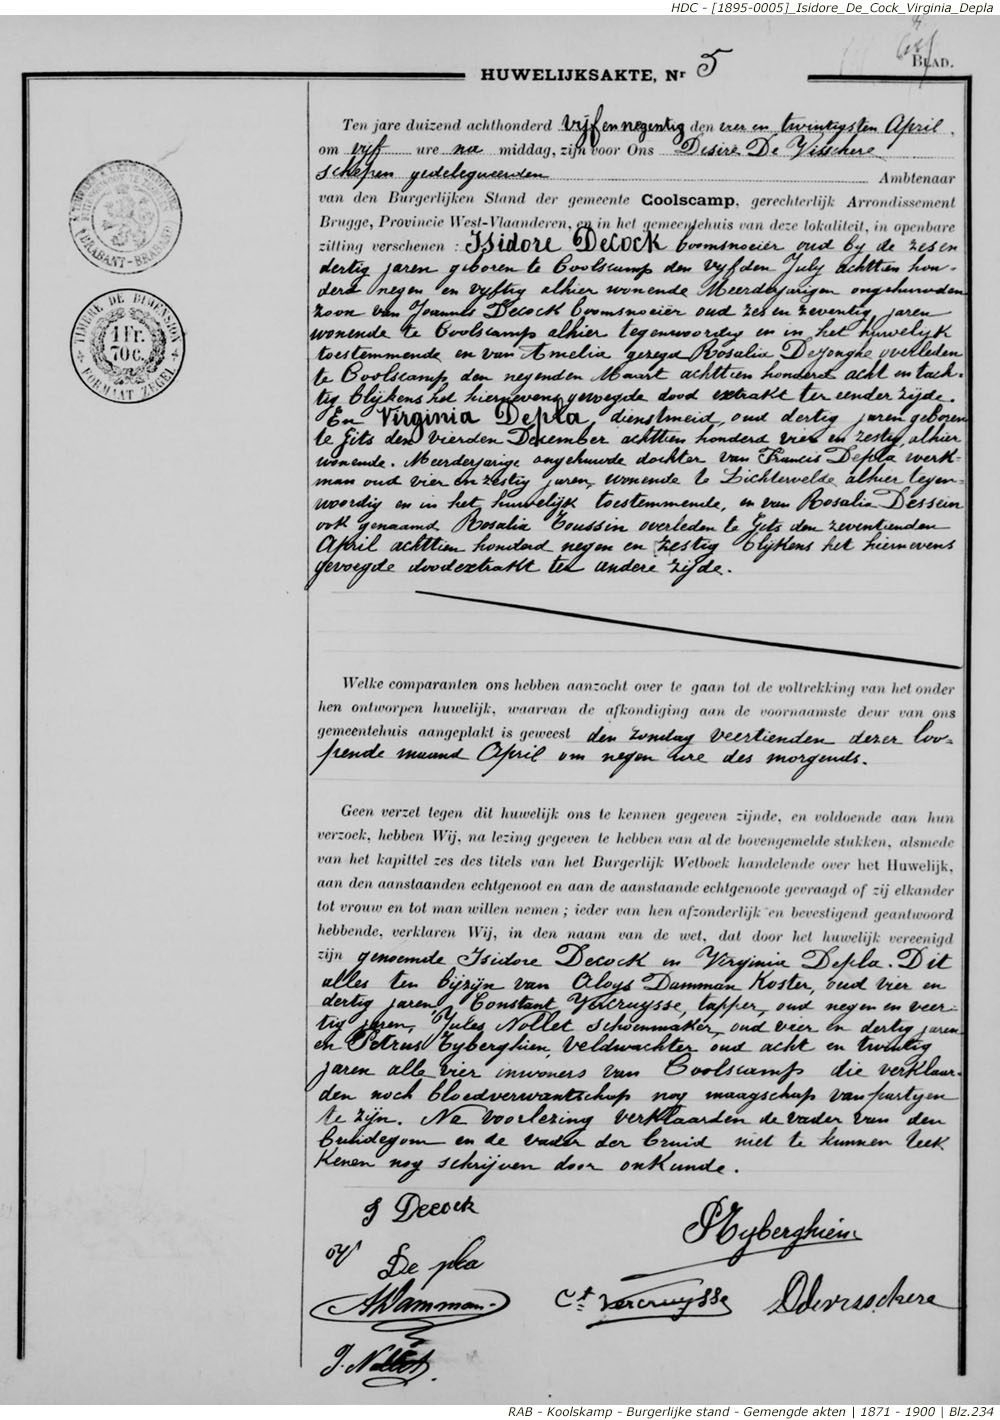 HDC - [1895-0005]_Isidore_De_Cock_Virginia_Depla
BLAD.
HUWELIJKSAKTE, Nr 5
Ten jare duizend achthonderd vijf en negentig den een en twintigsten April,
om vijf ure na middag, zijn voor Ons Desiré De Visschere
schepen gedelegueerden Ambtenaar
van den Burgerlijken Stand der gemeente Coolscamp, gerechterlijk Arrondissement
Brugge, Provincie West-Vlaanderen, en in het gemeentehuis van deze lokaliteit, in openbare
zitting verschenen : Isidore Decock boomsnoeier oud by de zes en
dertig jaren geboren te Coolscamp den vyfden July achttien hon-
derd negen en vyftig alhier wonende Meerderjarigen ongehuwden
zoon van Joannes Decock boomsnoeier oud zes en zeventig jaren
wonende te Coolscamp alhier tegenwoordig en in het huwelijk
toestemmende en van Amelia gezegd Rosalia Dejonghe overleden
te Coolscamp den negenden Maart achttien honderd acht en tach-
tig blijkens het hiernevens gevoegde dood extrakt ter eender zijde.
En Virginia Depla, dienstmeid, oud dertig jaren geboren
te Gits den vierden December achttien honderd vier en zestig, alhier
wonende. Meerderjarige ongehuwde dochter van Francis Depla werk-
man oud vier en zestig jaren, wonende te Lichtervelde alhier tegen-
woordig en in het huwelijk toestemmende, en van Rosalia Dessein
ook genaamd Rosalia Toussin overleden te Gits den zeventienden
April achttien honderd negen en zestig blijkens het hiernevens
gevoegde doodextrakt ter andere zijde.
Welke comparanten ons hebben aanzocht over te gaan tot de voltrekking van het onder
hen ontworpen huwelijk, waarvan de afkondiging aan de voornaamste deur van ons
gemeentehuis aangeplakt is geweest den zondag veertienden dezer loo-
pende maand April om negen ure des morgends.
Geen verzet tegen dit huwelijk ons te kennen gegeven zijnde, en voldoende aan hun
verzoek, hebben Wij, na lezing gegeven te hebben van al de bovengemelde stukken, alsmede
van het kapittel zes des titels van het Burgerlijk Wetboek handelende over het Huwelijk,
aan den aanstaanden echtgenoot en aan de aanstaande echtgenoote gevraagd of zij elkander
tot vrouw en tot man willen nemen ; ieder van hen afzonderlijk en bevestigend geantwoord
hebbende, verklaren Wij, in den naam van de wet, dat door het huwelijk vereenigd
zijn genoemde Isidore Decock en Virginia Depla. Dit
alles ten bijzijn van Aloys Damman Koster, oud vier en
dertig jaren, Constant Vercruysse, tapper, oud negen en veer-
tig jaren, Jules Nollet schoenmaker, oud vier en dertig jaren
en Petrus Tyberghien, veldwachter oud acht en twintig
jaren alle vier inwoners van Coolscamp die verklaar-
den noch bloedverwantschap nog maagschap van partyen
te zijn. Na voorlezing verklaarden de vader van den
bruidegom en de vader der bruid niet te kunnen teek
kenen nog schrijven door onkunde.
J Decock
PTyberghien
V De pla
ADamman
Ct Vercruysse
Ddevisschere
J. Nollet
TIMBRE DE DIMENSION
1 Fr.
70 c.
FORMAAT ZEGEL
BRABANT-BRABAND
RAB - Koolskamp - Burgerlijke stand - Gemengde akten | 1871 - 1900 | Blz.234